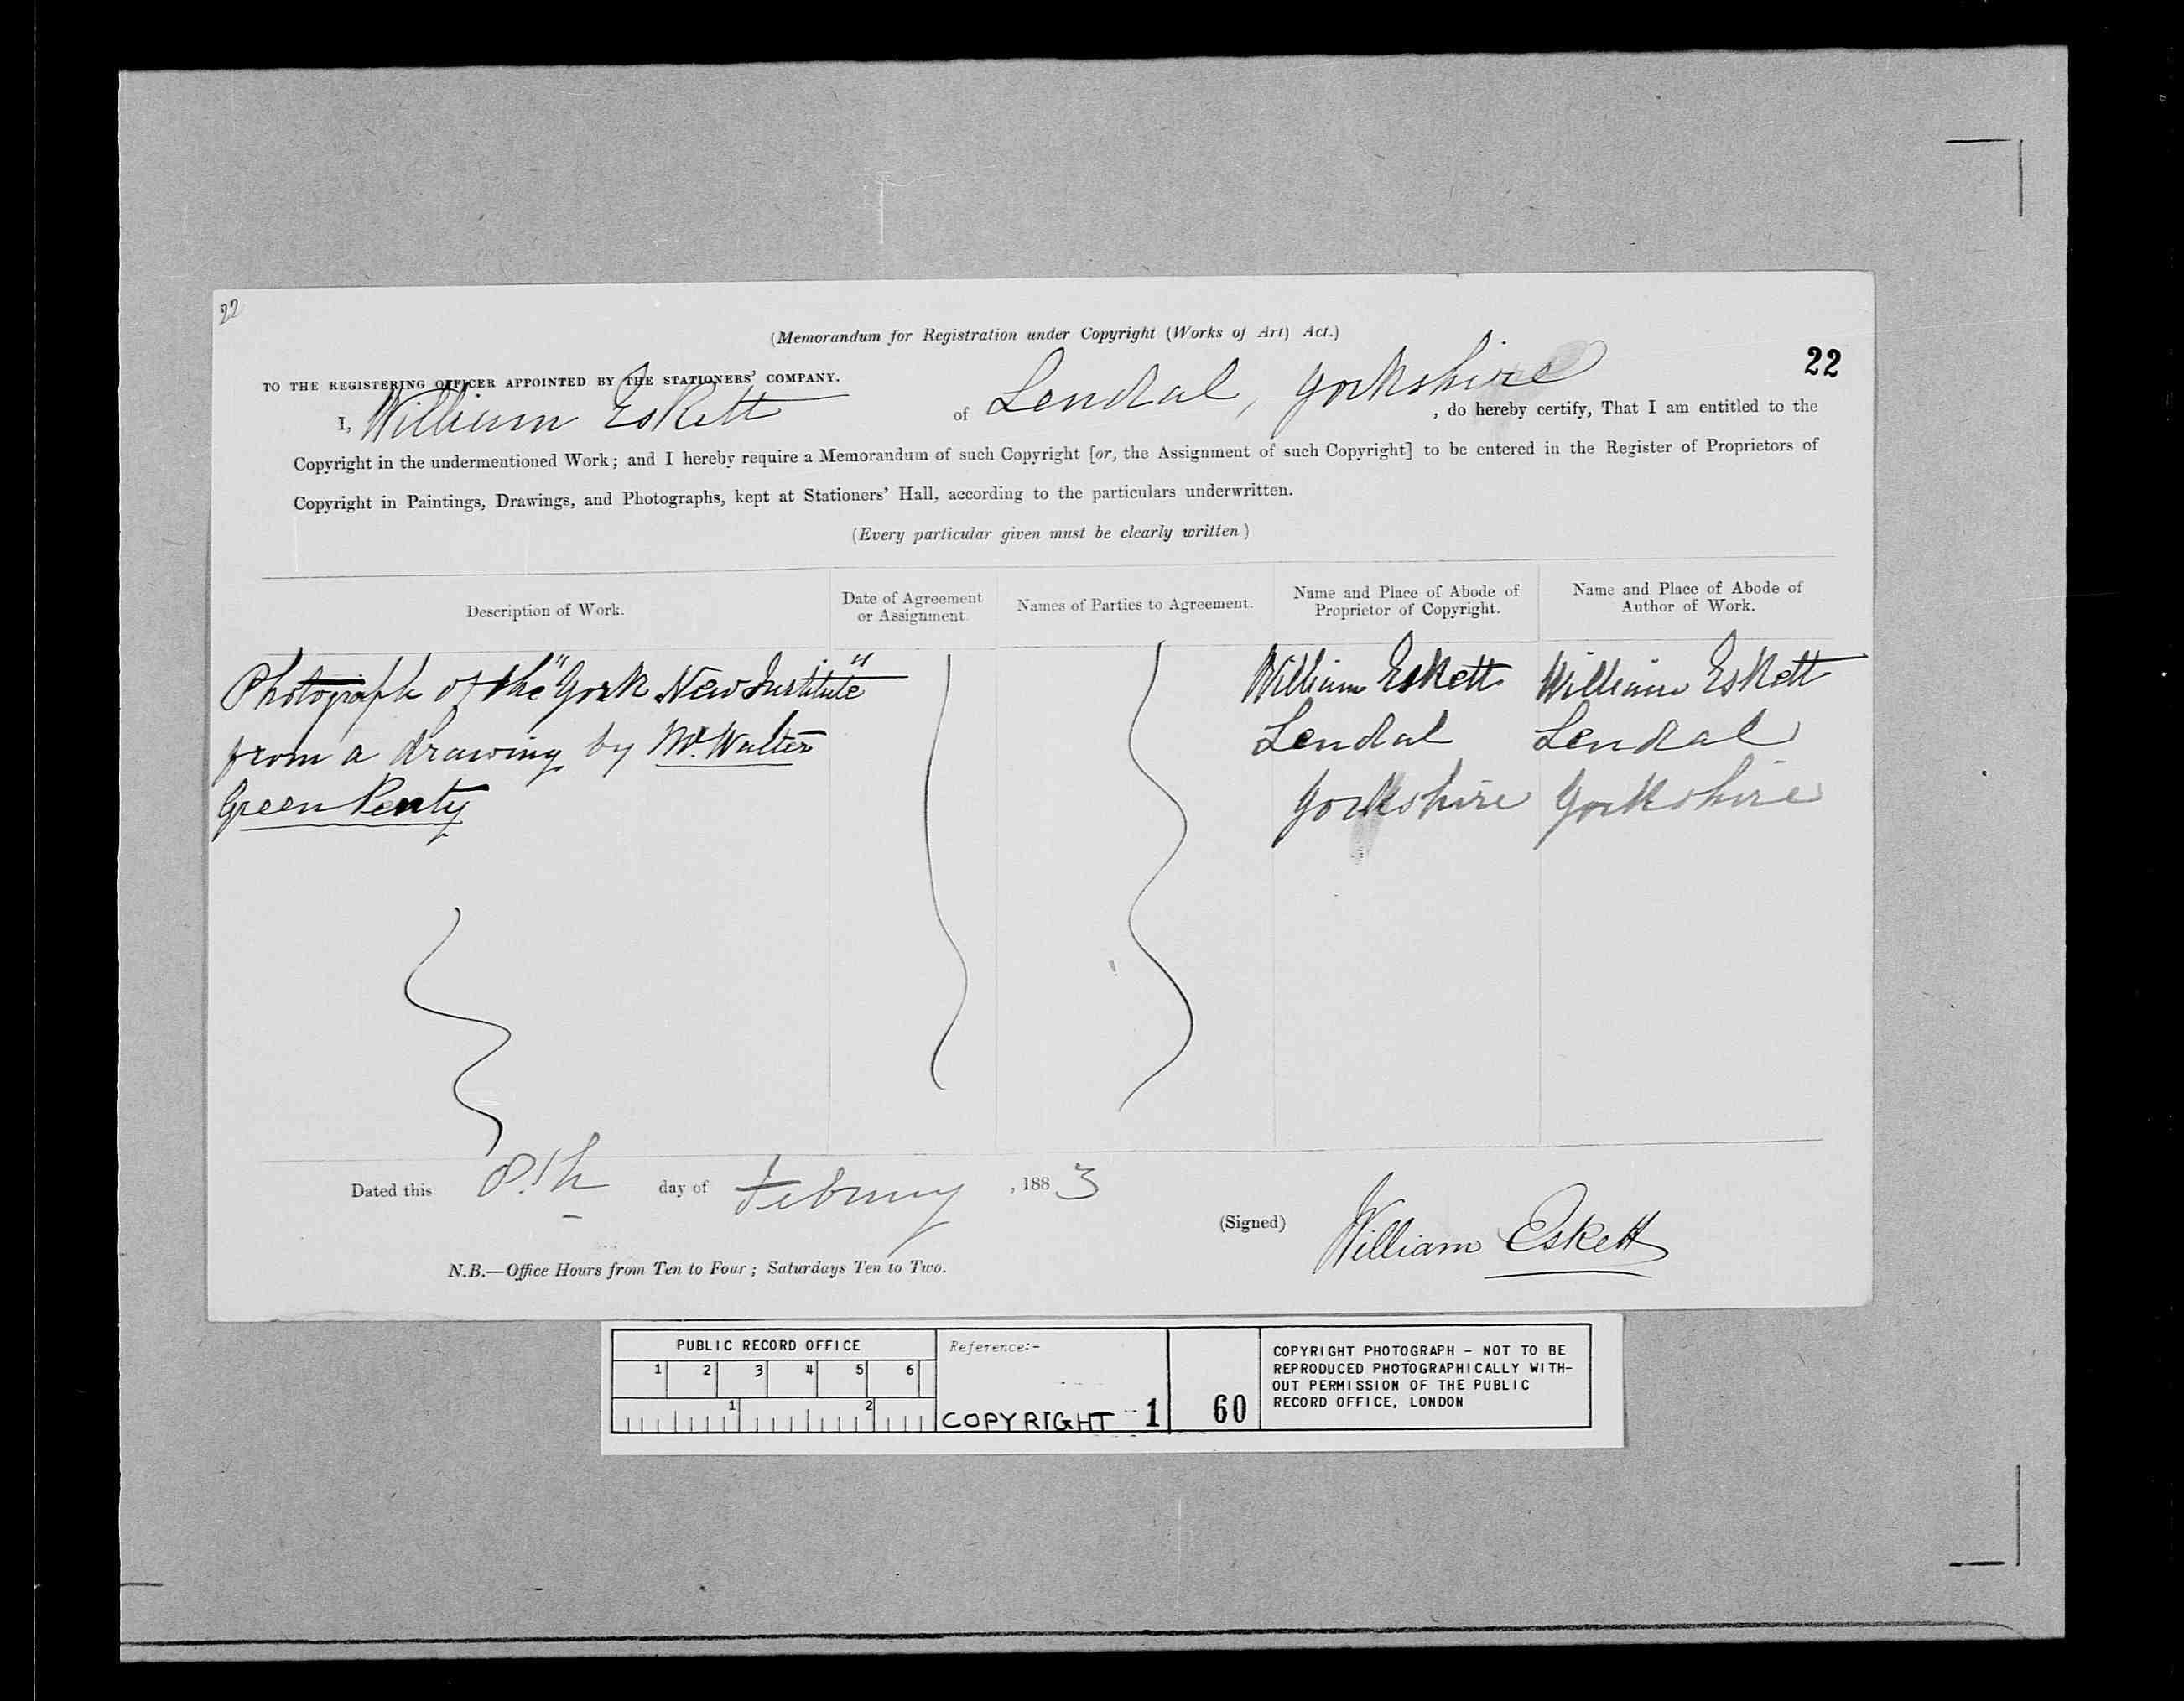 22
(Memorandum for Registration under Copyright (Works of Art) Act.)
22
TO THE REGISTERING OFFICER APPOINTED BY THE STATIONERS' COMPANY.
I, William Eskett of Lendal, Yorkshire, do hereby certify, That I am entitled to the
Copyright in the undermentioned Work; and I hereby require a Memorandum of such Copyright [or, the Assignment of such Copyright] to be entered in the Register of Proprietors of
Copyright in Paintings, Drawings, and Photographs, kept at Stationers' Hall, according to the particulars underwritten.
(Every particular given must be clearly written)
Description of Work.
Date of Agreement
or Assignment
Names of Parties to Agreement.
Name and Place of Abode of
Proprietor of Copyright.
Name and Place of Abode of
Author of Work.
Photograph of the "York New Institute"
from a drawing by Mr. Walter
Green Penty
William Eskett
Lendal
Yorkshire
William Eskett
Lendal
Yorkshire
Dated this 8th day of February, 1883
(Signed) William Eskett
N.B.—Office Hours from Ten to Four; Saturdays Ten to Two.
PUBLIC RECORD OFFICE
1 2 3 4 5 6
1 2
Reference:-
COPYRIGHT 1
60
COPYRIGHT PHOTOGRAPH - NOT TO BE
REPRODUCED PHOTOGRAPHICALLY WITH-
OUT PERMISSION OF THE PUBLIC
RECORD OFFICE, LONDON